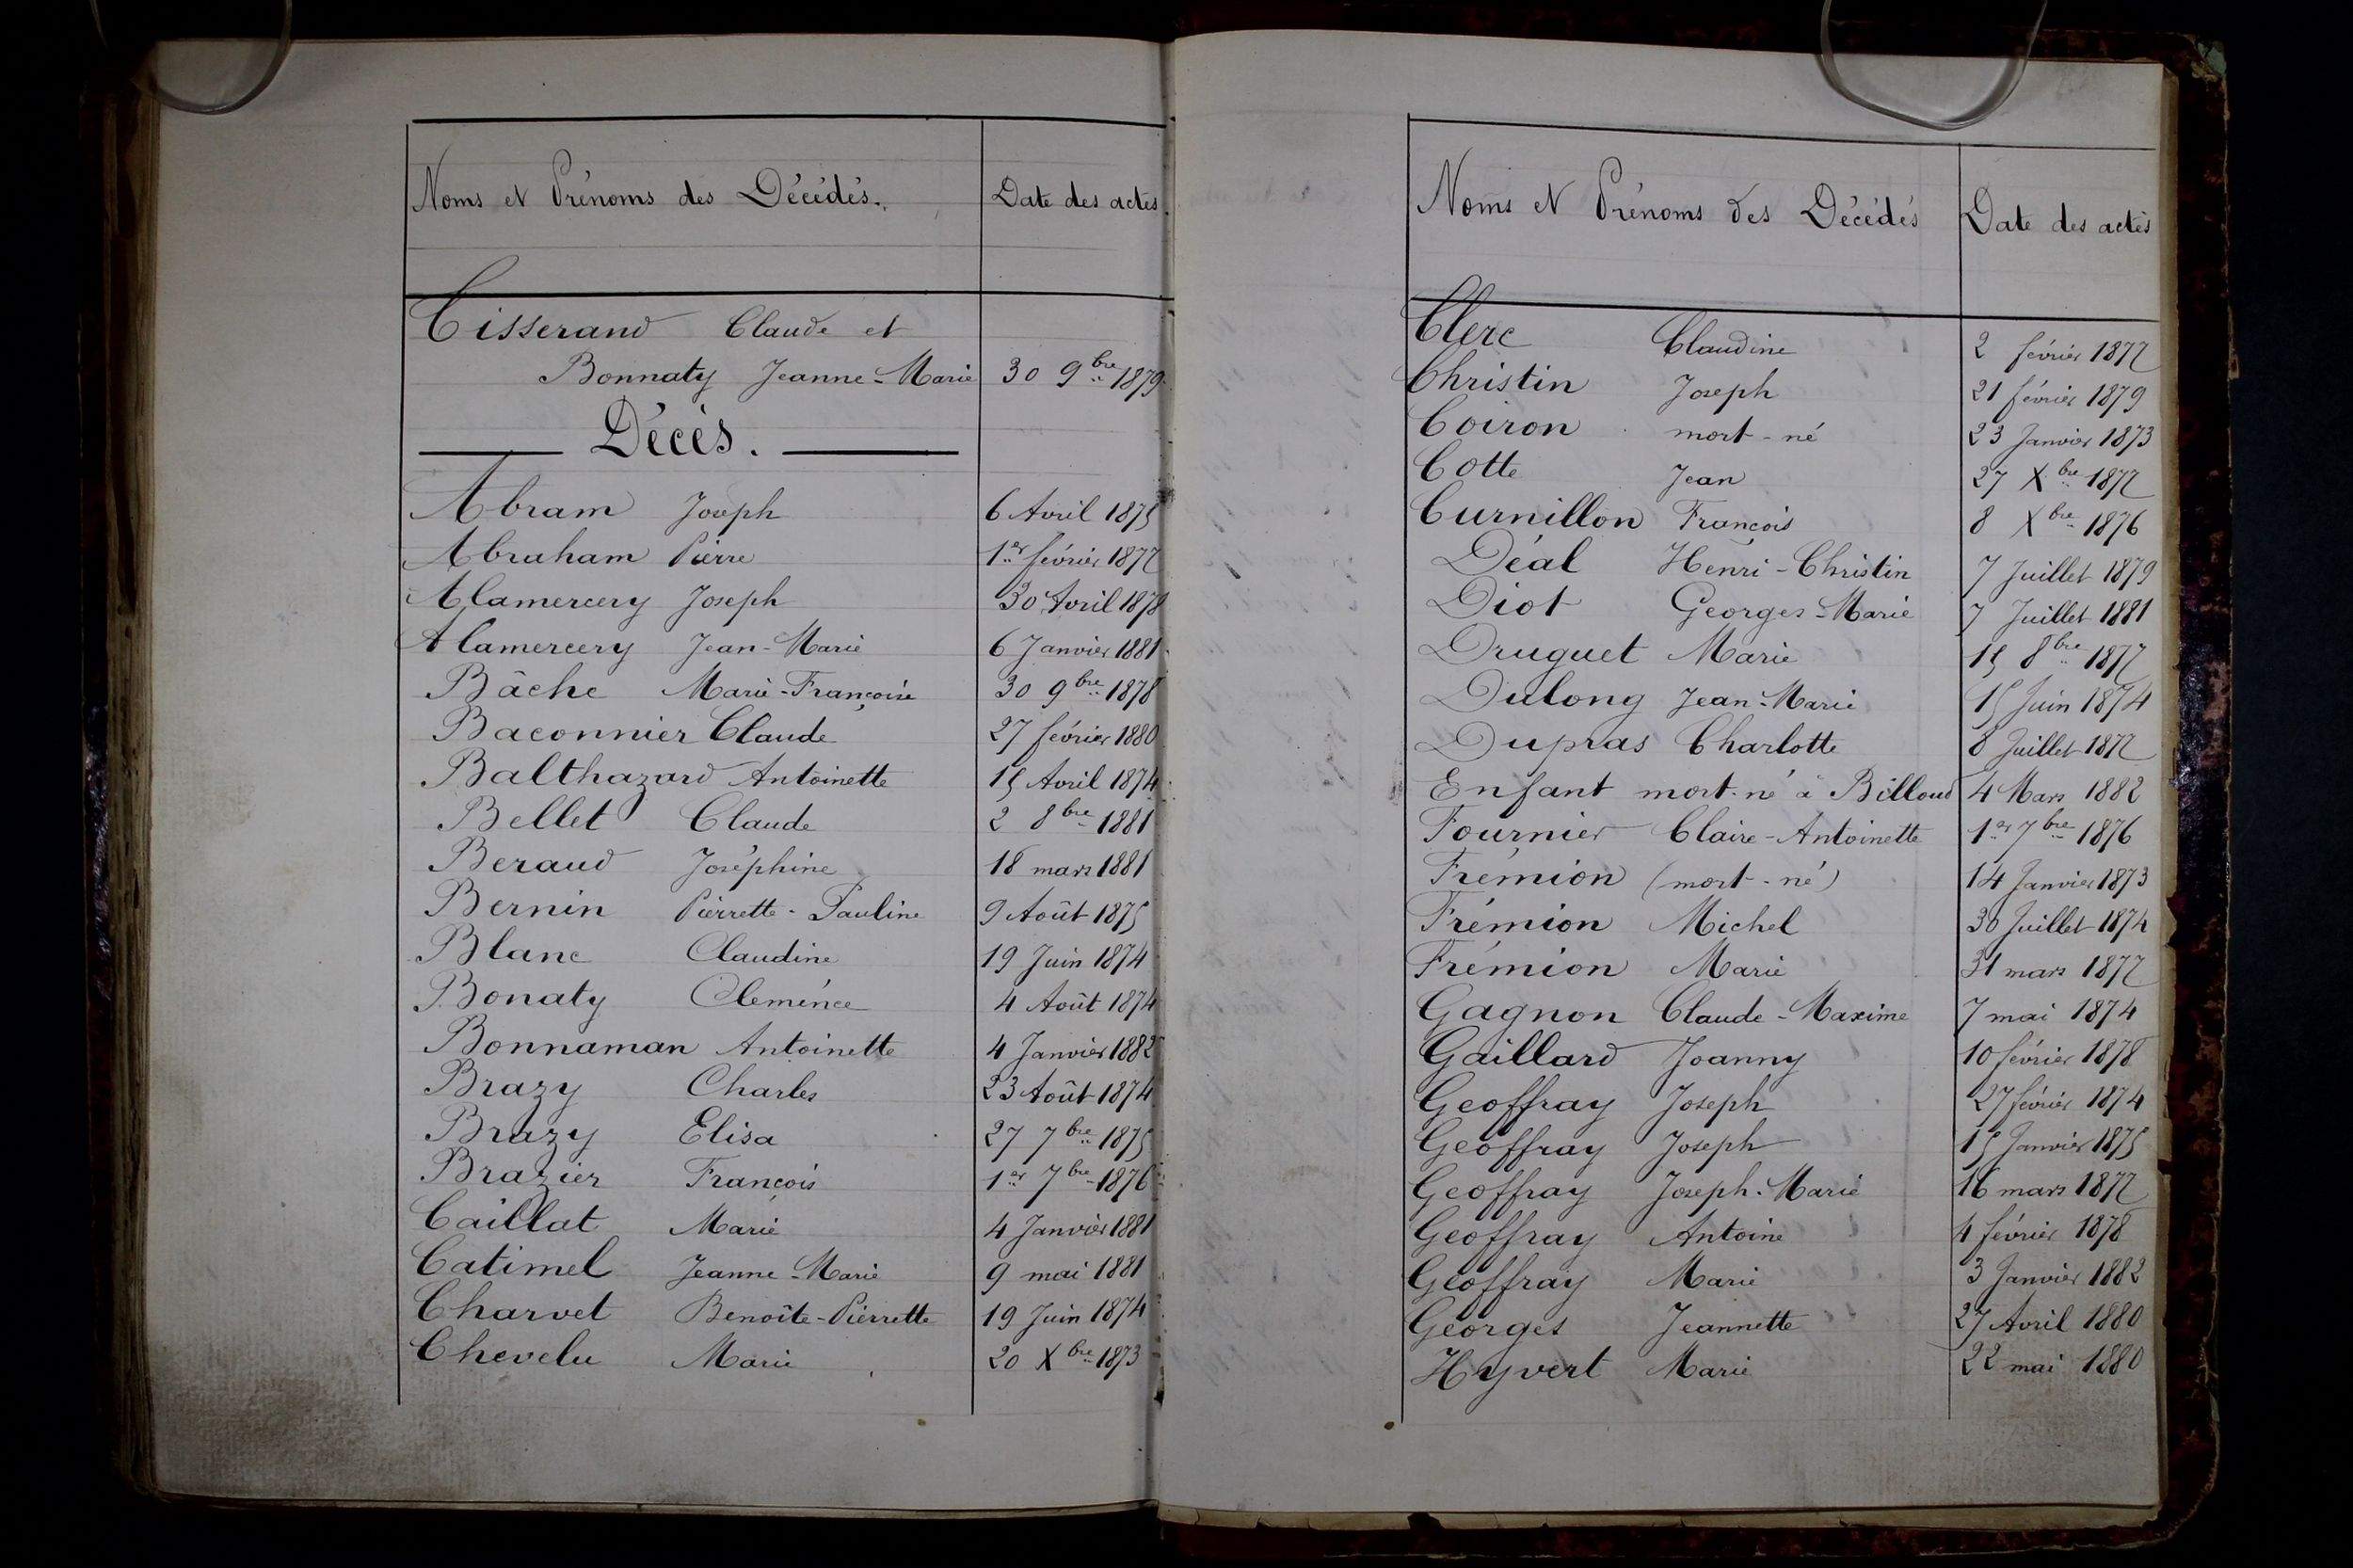 Noms et Prénoms des Décédés.
Date des actes.
Tisserand Claude et
Bonnaty Jeanne-Marie 30 9bre 1879
Décès.
Abram Joseph 6 Avril 1875
Abraham Pierre 1er février 1877
Alamercery Joseph 30 Avril 1878
Alamercery Jean-Marie 6 Janvier 1881
Bâche Marie-Françoise 30 9bre 1878
Baconnier Claude 27 février 1880
Balthazard Antoinette 15 Avril 1874
Bellet Claude 2 8bre 1881
Beraud Joséphine 18 mars 1881
Bernin Pierrette-Pauline 9 Août 1875
Blanc Claudine 19 Juin 1874
Bonaty Clemence 4 Août 1874
Bonnaman Antoinette 4 Janvier 1882
Brazy Charles 23 Août 1874
Brazy Elisa 27 7bre 1875
Brazier François 1er 7bre 1876
Caillat Marie 4 Janvier 1881
Catimel Jeanne-Marie 9 mai 1881
Charvet Benoîte-Pierrette 19 Juin 1874
Chevelu Marie 20 Xbre 1873
Noms et Prénoms des Décédés
Date des actes
Clerc Claudine 2 février 1877
Christin Joseph 21 février 1879
Coiron mort-né 23 Janvier 1873
Cotte Jean 27 Xbre 1877
Curnillon François 8 Xbre 1876
Déal Henri-Christin 7 Juillet 1879
Diot Georges-Marie 7 Juillet 1881
Druguet Marie 15 8bre 1877
Dulong Jean-Marie 15 Juin 1874
Dupras Charlotte 8 Juillet 1877
Enfant mort-né à Billoud 4 Mars 1882
Fournier Claire-Antoinette 1er 7bre 1876
Frémion (mort-né) 14 Janvier 1873
Frémion Michel 30 Juillet 1874
Frémion Marie 31 mars 1877
Gagnon Claude-Maxime 7 mai 1874
Gaillard Joanny 10 février 1878
Geoffray Joseph 27 février 1874
Geoffray Joseph 15 Janvier 1875
Geoffray Joseph-Marie 16 mars 1877
Geoffray Antoine 4 février 1878
Geoffray Marie 3 Janvier 1882
Georges Jeannette 27 Avril 1880
Hyvert Marie 22 mai 1880